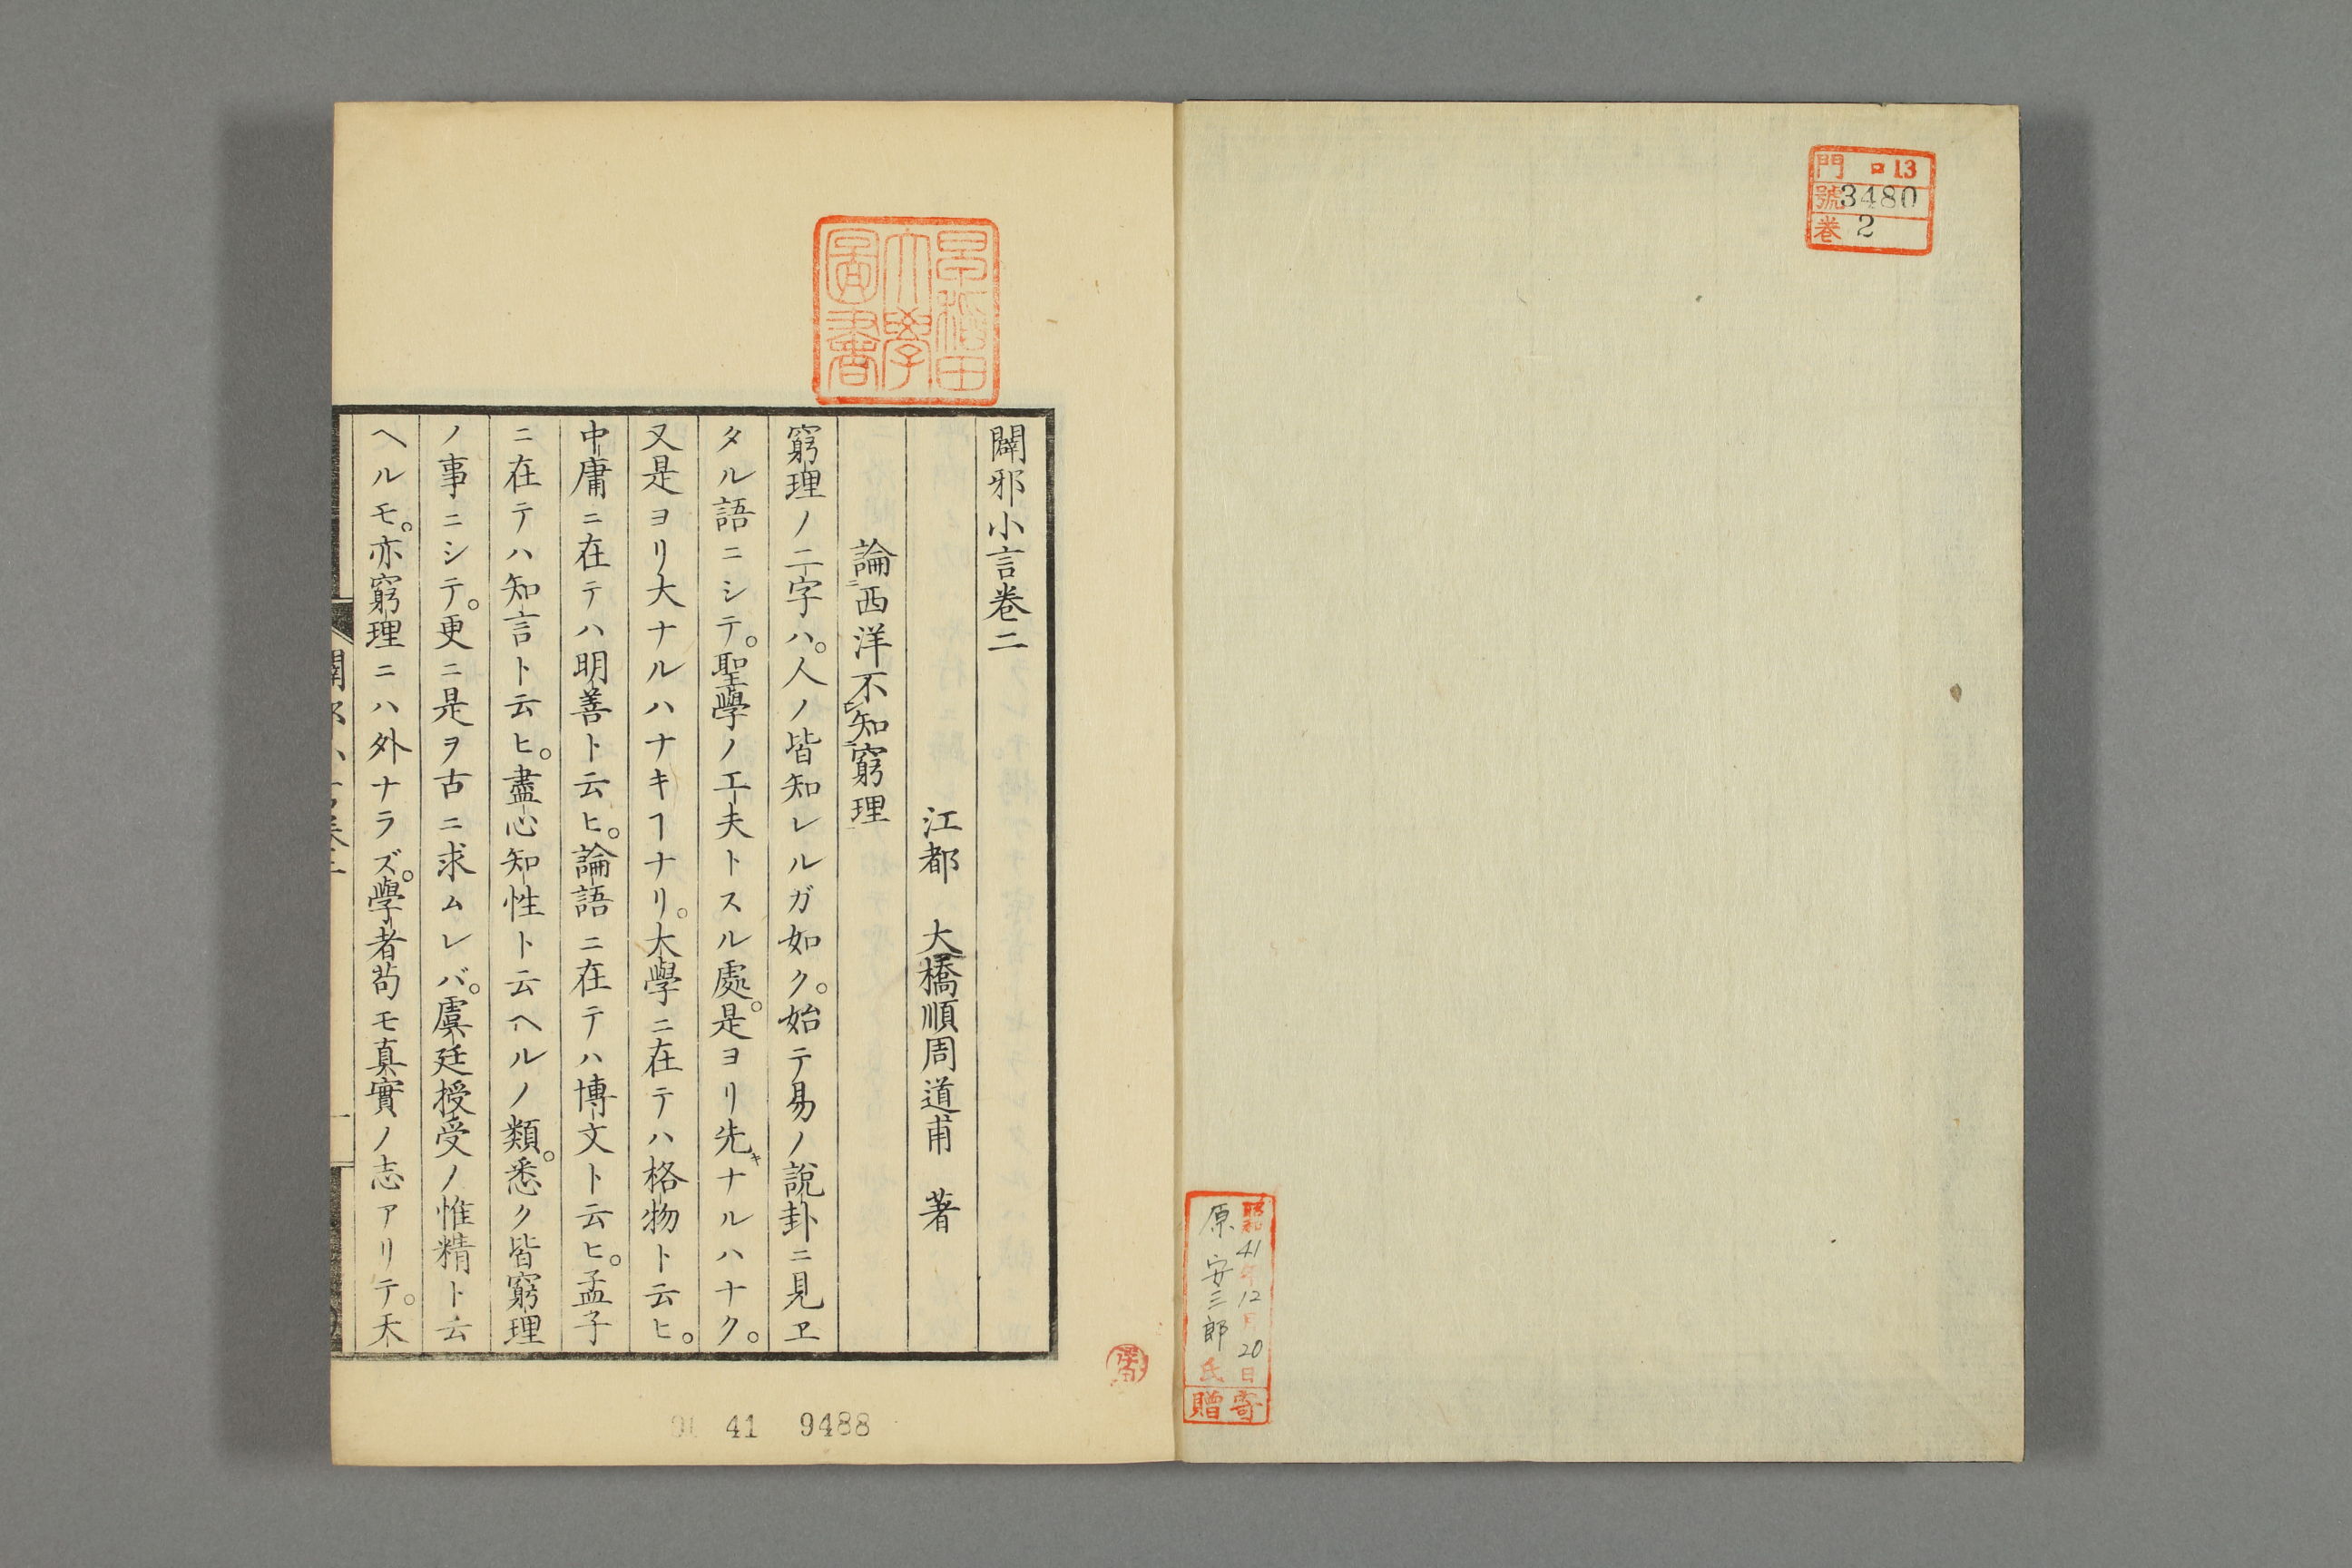 門 ロ13
號 3480
巻 2
昭和41年12月20日
原安三郎氏
寄贈
早稲田
大學
圖書
闢邪小言卷二
江都 大橋順周道甫 著
論西洋不知窮理
窮理ノ二字ハ。人ノ皆知レルガ如ク。始テ易ノ說卦ニ見ヱ
タル語ニシテ。聖學ノ工夫トスル處。是ヨリ先キナルハナク。
又是ヨリ大ナルハナキヿナリ。大學ニ在テハ格物ト云ヒ。
中庸ニ在テハ明善ト云ヒ。論語ニ在テハ博文ト云ヒ。孟子
ニ在テハ知言ト云ヒ。盡心知性ト云ヘルノ類。悉ク皆窮理
ノ事ニシテ。更ニ是ヲ古ニ求ムレバ。虞廷授受ノ惟精ト云
ヘルモ。亦窮理ニハ外ナラズ。學者苟モ真實ノ志アリテ。天
41 9488